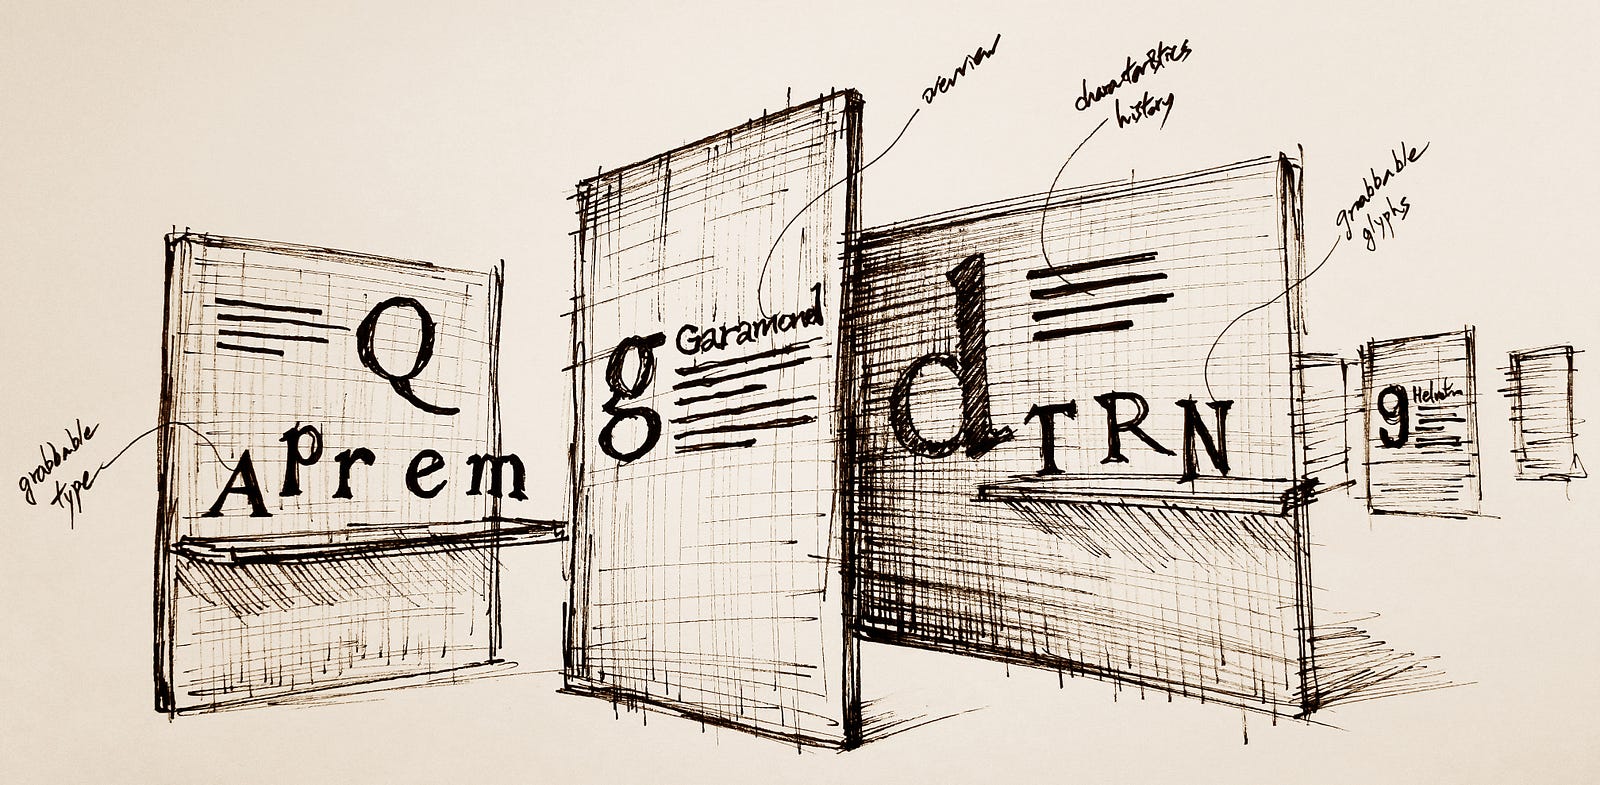 overview
characteristics
history
grabbable
glyphs
grabbable
type
Q
A P r e m
g Garamond
d
T R N
g